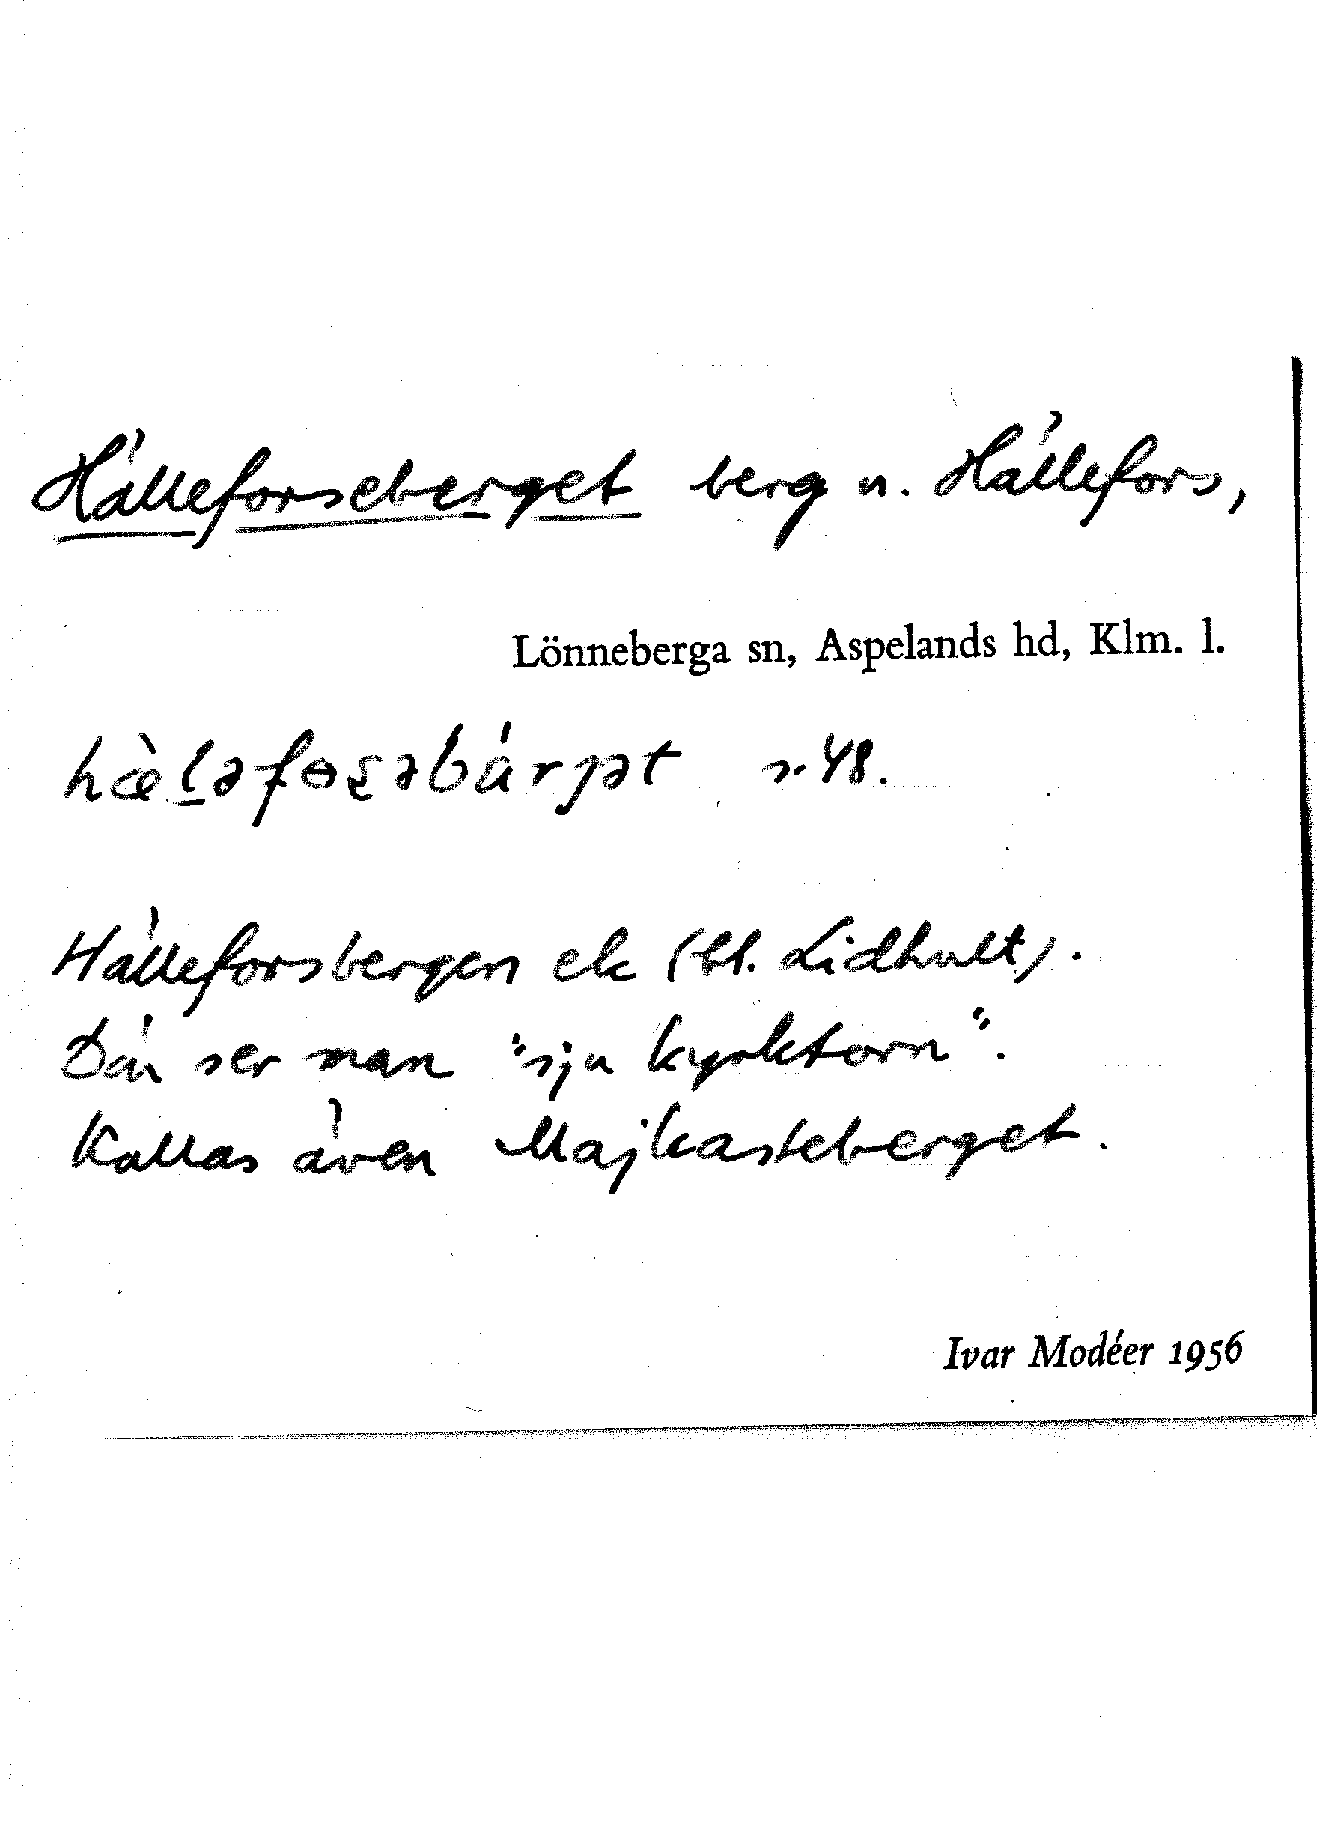 Hälleforseberget berg n. Hällefors,
Lönneberga sn, Aspelands hd, Klm. l.
hæ̀l̠əfɵʂəbárjət s. 48.
Hälleforsbergen ek (bl. Lidhult).
Där ser man "sju kyrktorn".
Kallas även Majkasteberget.
Ivar Modéer 1956